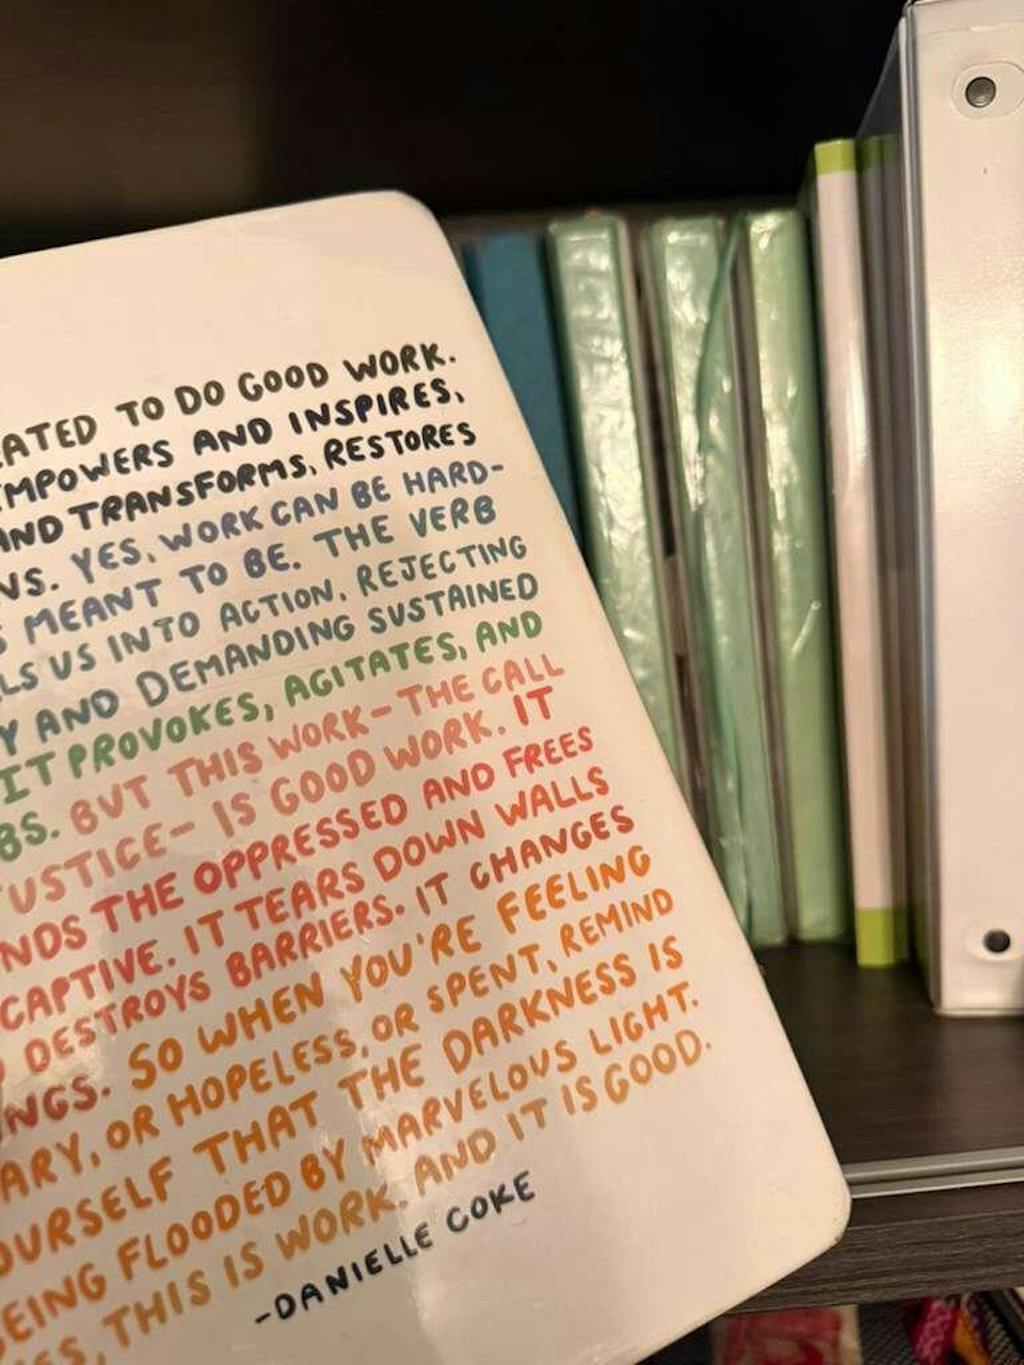 TO DO GOOD WORK.
EMPOWERS AND INSPIRES,
AND TRANSFORMS, RESTORES
YES, WORK CAN BE HARD-
MEANT TO BE. THE VERB
US INTO ACTION, REJECTING
AND DEMANDING SUSTAINED
IT PROVOKES, AGITATES, AND
BUT THIS WORK- THE CALL
JUSTICE- IS GOOD WORK. IT
THE OPPRESSED AND FREES
CAPTIVE. IT TEARS DOWN WALLS
DESTROYS BARRIERS. IT CHANGES
SO WHEN YOU'RE FEELING
OR HOPELESS, OR SPENT, REMIND
YOURSELF THAT THE DARKNESS IS
BEING FLOODED BY MARVELOUS LIGHT.
THIS IS WORK. AND IT IS GOOD.
-DANIELLE COKE